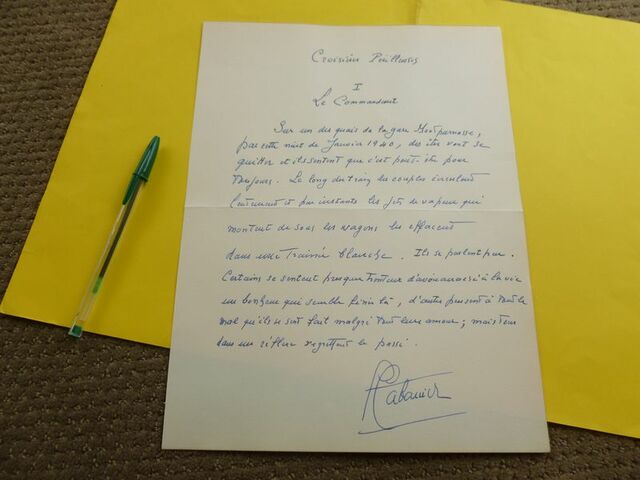 Croisière Périlleuses
I
Le Commandant
Sur un des quais de la gare Montparnasse,
par cette nuit de Janvier 1940, des êtres vont se
quitter et ils sentent que c'est peut-être pour
toujours. Le long du train les couples
et par instants les jets de vapeur qui
montent de sous les wagons les effacent
dans une Trainée blanche. Ils se parlent peu.
Certains se sentent presque honteux d'avoir à la vie
un bonheur qui semble fini là, d'autres pensent à tout le
mal qu'ils se sont fait malgré tout leur amour; mais tous
dans un réflexe regrettent le passé.
Cabanier